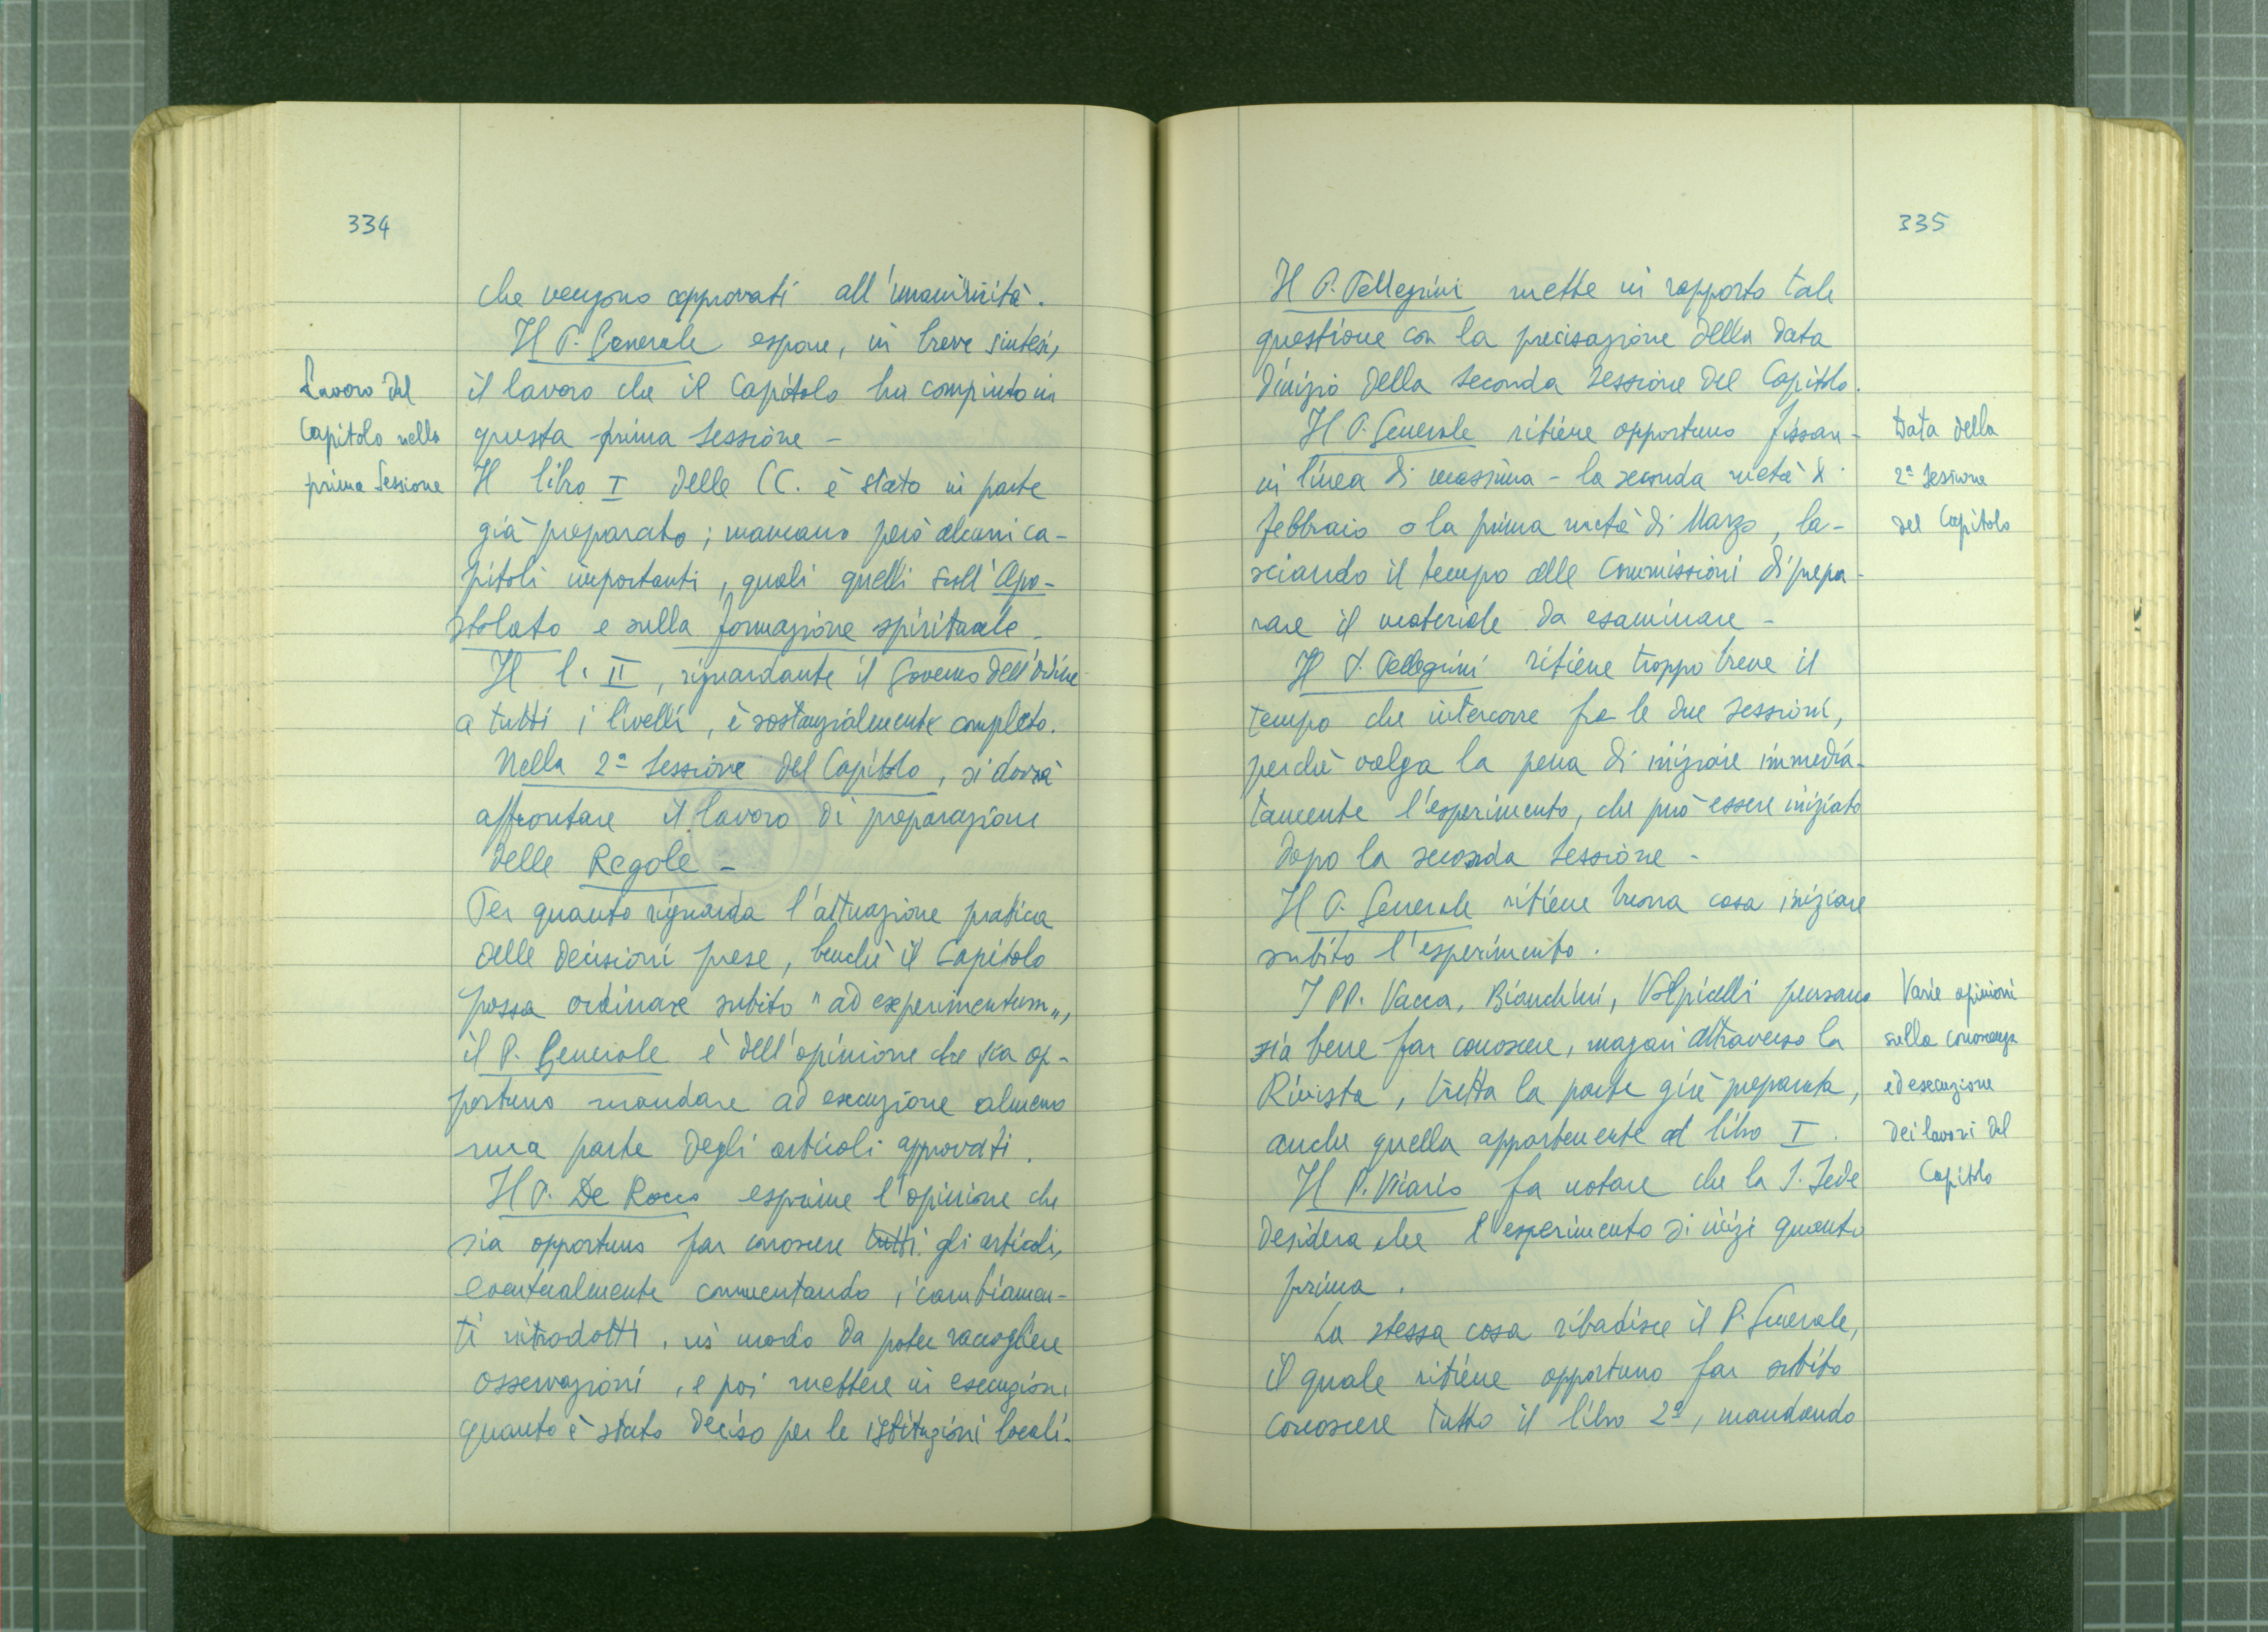 334
che vengono approvati all'unanimità.
Il P. Generale espone, in breve sintesi,
il lavoro che il Capitolo ha compiuto in
questa prima Sessione -
Il libro I delle CC. è stato in parte
già preparato; mancano però alcuni ca-
pitoli importanti, quali quelli sull'Apo-
stolato e sulla formazione spirituale -
Il l. II, riguardante il Governo dell'Ordine
a tutti i livelli, è sostanzialmente completo.
Nella 2ª Sessione del Capitolo, si dovrà
affrontare il lavoro di preparazione
delle Regole -
Per quanto riguarda l'attuazione pratica
delle decisioni prese, benchè il Capitolo
possa ordinare subito "ad experimentum",
il P. Generale è dell'opinione che sia op-
portuno mandare ad esecuzione almeno
una parte degli articoli approvati.
Il P. De Rocco esprime l'opinione che
sia opportuno far conoscere tutti gli articoli,
eventualmente commentando i cambiamen-
ti introdotti, in modo da poter raccogliere
osservazioni, e poi mettere in esecuzione
quanto è stato deciso per le istituzioni locali.
Lavoro del
Capitolo nella
prima Sessione
335
Il P. Pellegrini mette in rapporto tale
questione con la precisazione della data
d'inizio della seconda Sessione del Capitolo.
Il P. Generale ritiene opportuno fissare -
in linea di massima - la seconda metà di
febbraio o la prima metà di Marzo, la-
sciando il tempo alle Commissioni di prepa-
rare il materiale da esaminare -
Il P. Pellegrini ritiene troppo breve il
tempo che intercorre fra le due Sessioni,
perchè valga la pena di iniziare immedia-
tamente l'esperimento, che può essere iniziato
dopo la seconda Sessione -
Il P. Generale ritiene buona cosa iniziare
subito l'esperimento.
I PP. Vacca, Bianchini, Volpicelli pensano
sia bene far conoscere, magari attraverso la
Rivista, tutta la parte già preparata,
anche quella appartenente al libro I.
Il P. Vicario fa notare che la S. Sede
desidera che l'esperimento si inizi quanto
prima.
La stessa cosa ribadisce il P. Generale,
il quale ritiene opportuno far subito
conoscere tutto il libro 2º, mandando
Data della
2ª Sessione
del Capitolo
Varie opinioni
sulla conoscenza
ed esecuzione
dei lavori del
Capitolo